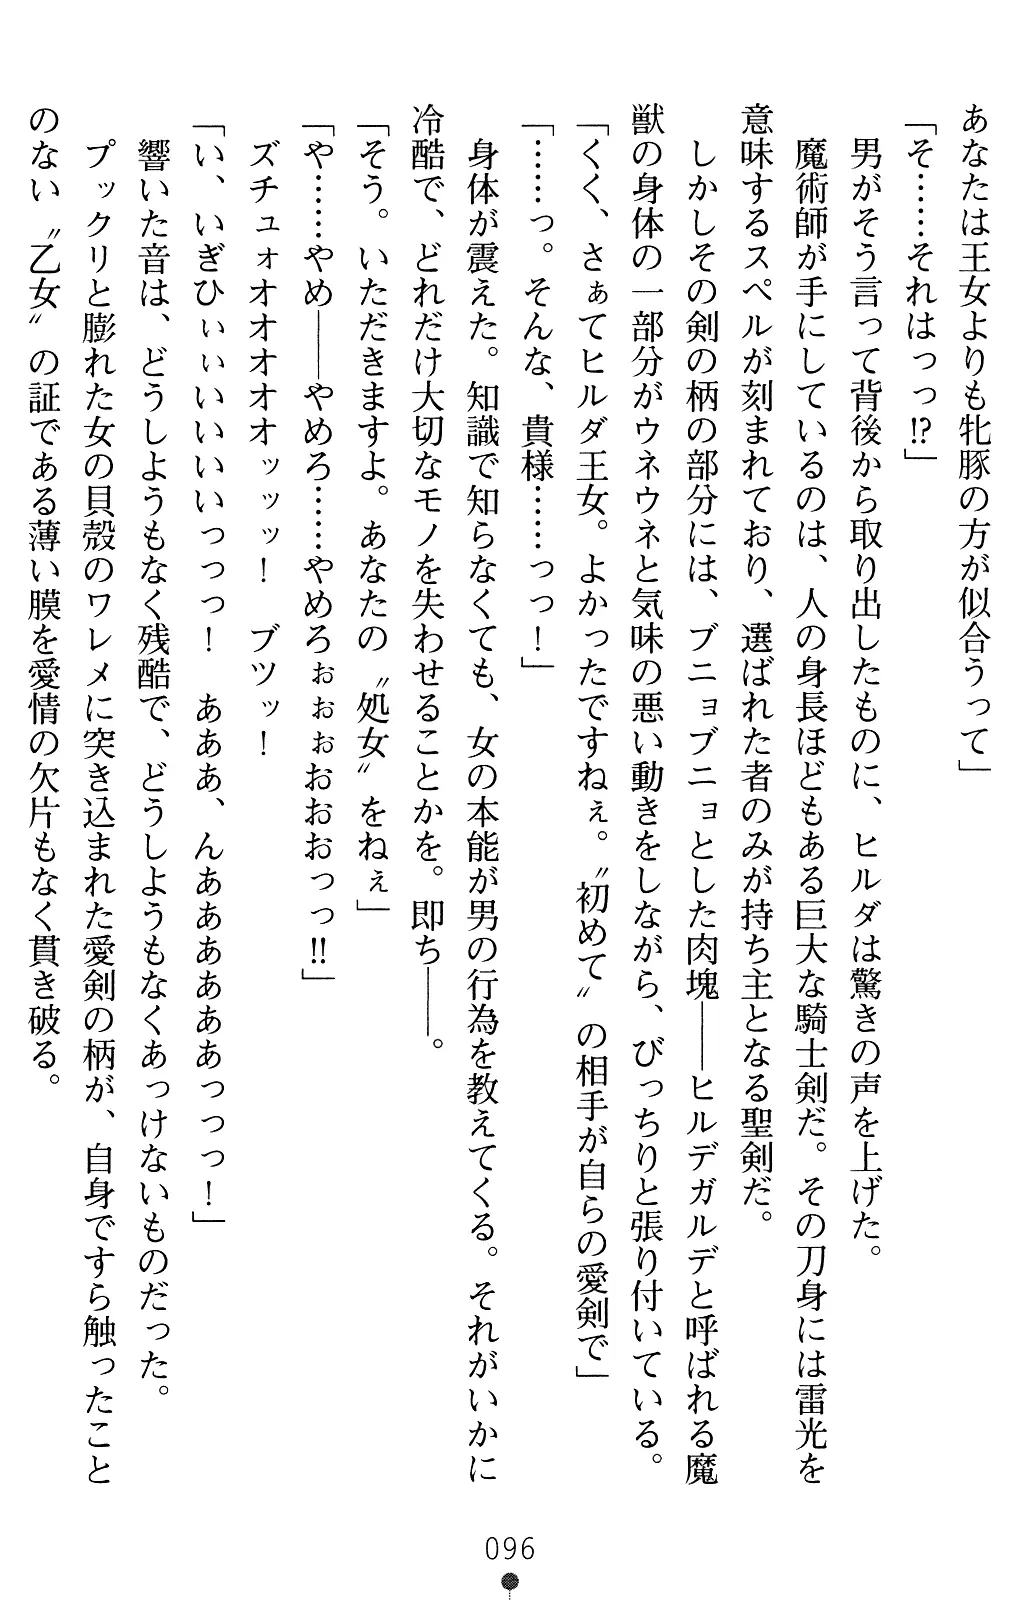 あなたは王女よりも牝豚の方が似合うって」
「そ……それはっっ!?」
男がそう言って背後から取り出したものに、ヒルダは驚きの声を上げた。
魔術師が手にしているのは、人の身長ほどもある巨大な騎士剣だ。その刀身には雷光を
意味するスペルが刻まれており、選ばれた者のみが持ち主となる聖剣だ。
しかしその剣の柄の部分には、ブニョブニョとした肉塊――ヒルデガルデと呼ばれる魔
獣の身体の一部分がウネウネと気味の悪い動きをしながら、びっちりと張り付いている。
「くく、さぁてヒルダ王女。よかったですねぇ。〝初めて〟の相手が自らの愛剣で」
「……っ。そんな、貴様……っっ！」
身体が震えた。知識で知らなくても、女の本能が男の行為を教えてくる。それがいかに
冷酷で、どれだけ大切なモノを失わせることかを。即ち――。
「そう。いただきますよ。あなたの〝処女〟をねぇ」
「や……やめ――やめろ……やめろぉぉぉおおおっっ!!」
ズチュォオオオオッッッ！　ブツッ！
「い、いぎひぃぃいいいいっっっ！　あああ、んああああああっっっ！」
響いた音は、どうしようもなく残酷で、どうしようもなくあっけないものだった。
プックリと膨れた女の貝殻のワレメに突き込まれた愛剣の柄が、自身ですら触ったこと
のない〝乙女〟の証である薄い膜を愛情の欠片もなく貫き破る。
096